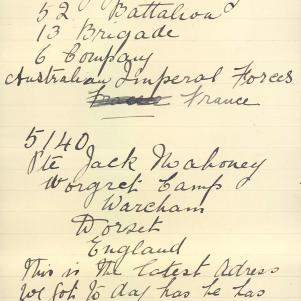 52 Battalion
13 Brigade
6 Company
Australian Imperal Forces
France
5140
Pte Jack Mahoney
Worgret Camp
Warcham
Dorset
England
This is the latest Adress
We got to day has he has